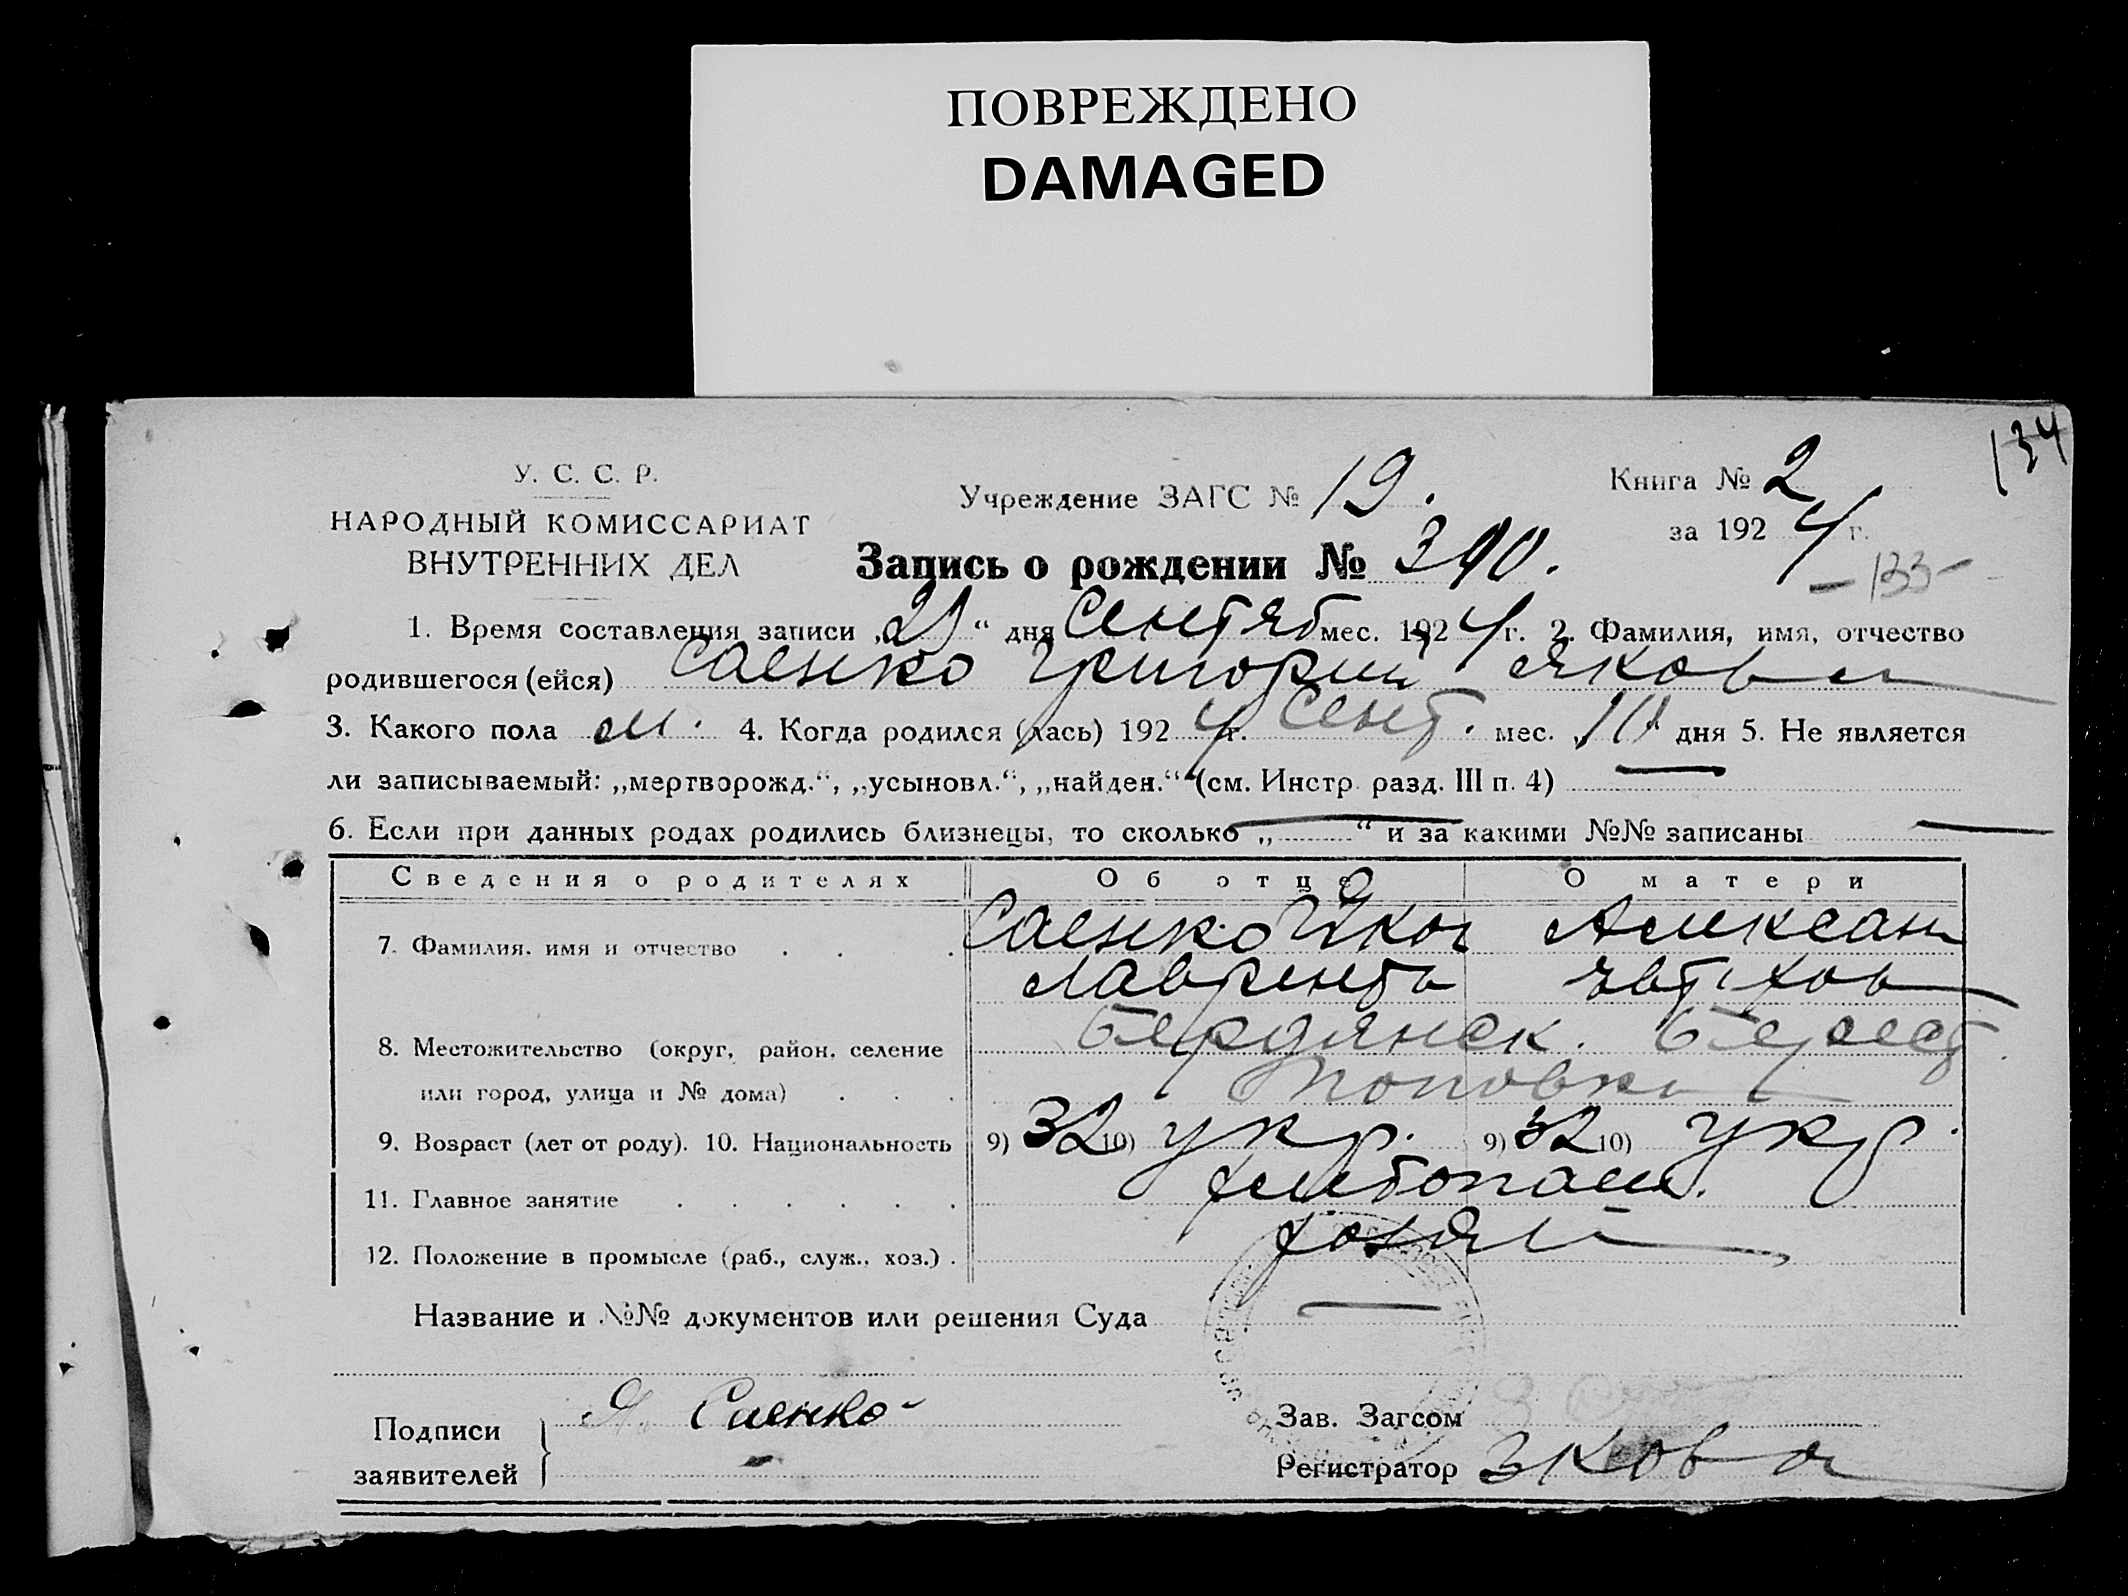 ПОВРЕЖДЕНО
DAMAGED
134
У. С. С. Р.
НАРОДНЫЙ КОМИССАРИАТ
ВНУТРЕННИХ ДЕЛ
Учреждение ЗАГС № 19.
Книга № 2
за 192 4 г.
Запись о рождении № 390.
— 133 —
1. Время составления записи „ “ дня Сентяб мес. 192 4 г. 2. Фамилия, имя, отчество
родившегося (ейся) Саенко Григорий Яков
3. Какого пола м. 4. Когда родился (лась) 192 4 г. Сент. мес. „10 дня 5. Не является
ли записываемый: „мертворожд.“, „усыновл.“, „найден.“ (см. Инстр. разд. III п. 4) —
6. Если при данных родах родились близнецы, то сколько „ — “ и за какими №№ записаны —
Сведения о родителях Об отце О матери
7. Фамилия, имя и отчество . . . Саенко Яков Александ
Лаврентьев
8. Местожительство (округ, район, селение Бердянск. Берест.
или город, улица и № дома) . . . Поповка
9. Возраст (лет от роду). 10. Национальность 9) 32 10) укр. 9) 32 10) укр.
11. Главное занятие . . . . . . хлебопаш.
12. Положение в промысле (раб., служ., хоз.) . хозяин
Название и №№ документов или решения Суда —
Подписи
заявителей
Я. Саенко
Зав. Загсом
Регистратор